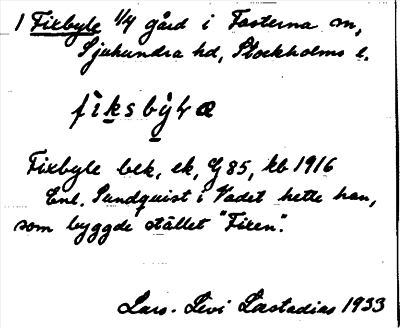 1 Fixbyle 1/4 gård i Fasterna sn,
Sjuhundra hd, Stockholms l.
fìksbỳɫæ
Fixbyle bek, ek, G 85, kb 1916
Enl. Sundquist i Vadet hette han,
som byggde stället "Fixen".
Lars-Levi Læstadius 1933